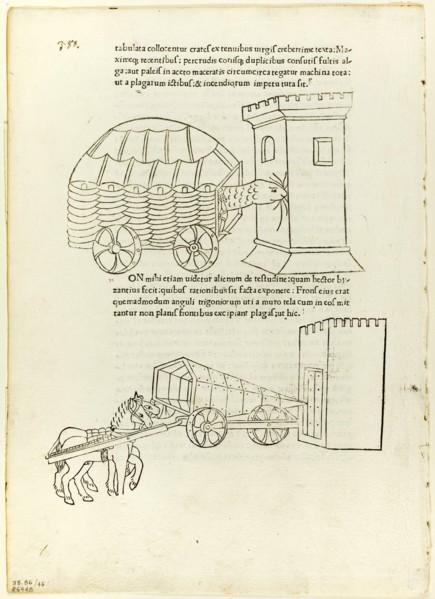 tabulata collocentur crates ex tenuibus uirgis creberrime texta: Ma
ximeq; recentibus: percrudis coriisq; duplicibus consutis fultis al-
ga: aut paleis in aceto maceratis circumcirca tegatur machina tota:
ut a plagarum ictibus: & incendiorum impetu tuta sit.
ON mihi etiam uidetur alienum de testudine: quam hector by-
zantius fecit: quibus rationibus sit facta exponere: Frons eius erat
quemadmodum anguli trigoniorum uti a muro tela cum in eos mit
tantur non planis frontibus excipiant plagas: ut hic.